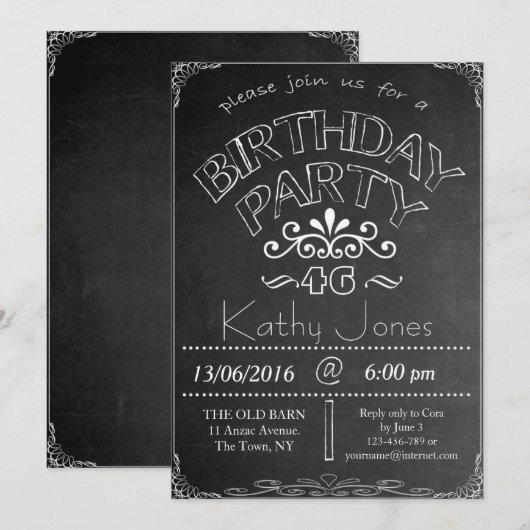 please join us for a
BIRTHDAY
PARTY
46
Kathy Jones
13/06/2016 @ 6:00 pm
THE OLD BARN
11 Anzac Avenue.
The Town, NY
Reply only to Cora
by June 3
123-456-789 or
yourname@internet.com